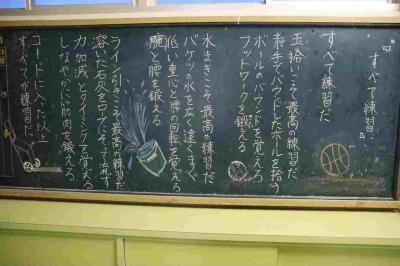 すべて練習だ
すべて練習だ
玉拾いこそ最高の練習だ
素手でバウンドしたボールを拾う
ボールのバウンドを覚えろ
フットワークを鍛えろ
水まきこそ最高の練習だ
バケツの水を広く遠くまく
低い重心と腰の回転を覚える
腕と腰を鍛える
ライン引きこそ最高の練習だ
溶いた石灰をロープにそって流す
力加減とタイミングを覚える
しなやかに筋肉を鍛えろ
コートに入った以上
すべてが練習だ